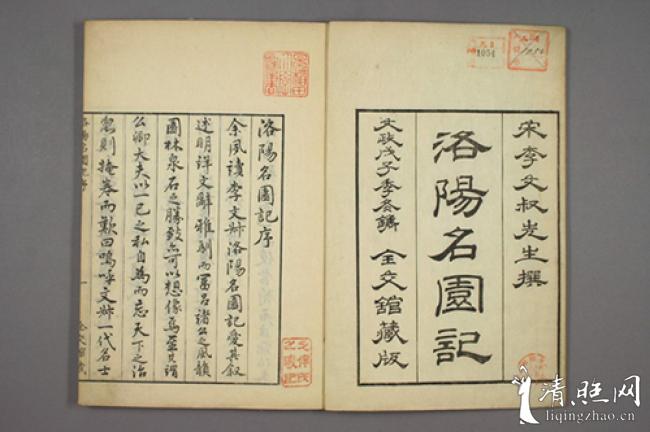 宋李文叔先生撰
洛陽名園記
文政戊子季冬鐫 全交館藏版
洛陽名園記序
余夙讀李文叔洛陽名園記愛其叙
述明詳文辭雅馴而冨吕諸公之風韻
園林泉石之勝致亦可以想像焉至其謂
公卿大夫以一已之私自為而忘天下之治
忽則掩卷而歎曰嗚呼文叔一代名士
1054
清照网
liqingzhao.cn